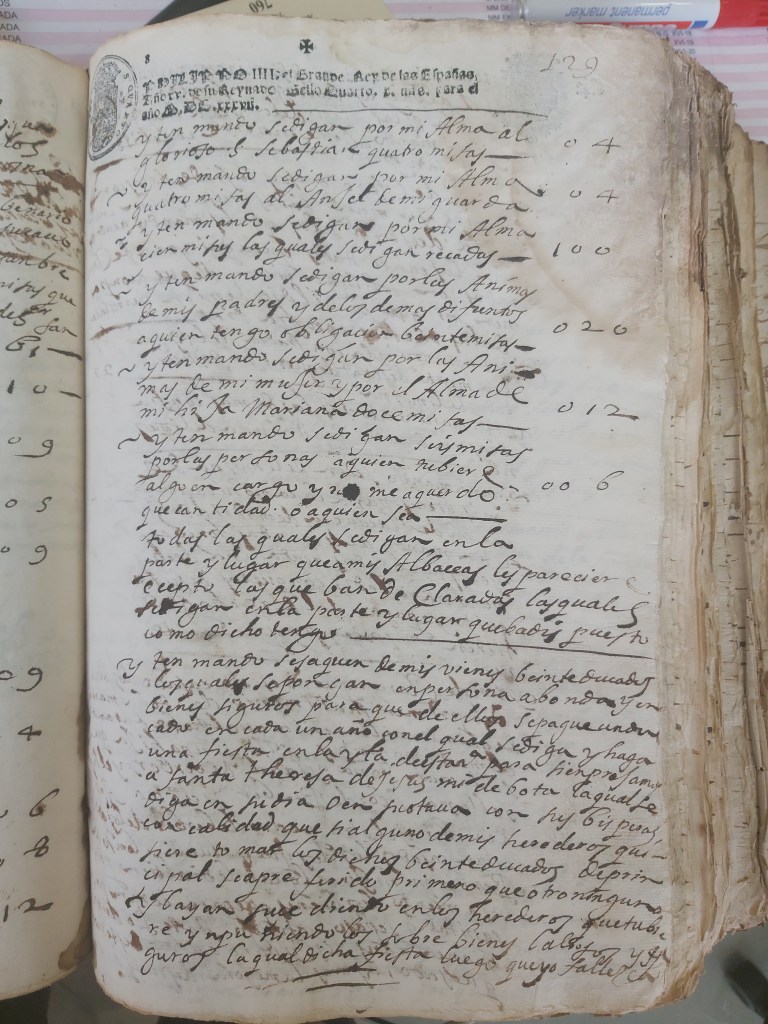 permanent marker
8
✠
129
PHILIPPO IIII. el Grande Rey de las Españas,
Año xv. de su Reynado Sello Quarto, para el
año M.DC.xxxvii.
y ten mando se digan por mi Alma al
glorioso S Sebastian quatro misas — 0 4
y ten mando se digan por mi Alma
quatro misas al Angel de mi guarda 0 4
y ten mando se digan por mi Alma
cien misas las quales se digan recadas — 1 0 0
y ten mando se digan por las Animas
de mis padres y de los demas difuntos
a quien tengo obligacion beinte misas — 0 2 0
y ten mando se digan por las Ani-
mas de mi mujer y por el Alma de
mi hija Mariana doce misas — 0 12
y ten mando se digan seis misas
por las personas a quien tubiere
algo en cargo y no me aquerdo 00 6
que cantidad o a quien sea —
todas las quales se digan en la
parte y lugar que a mis Albaceas les pareciere
ecepto las que ban de Claradas las quales
se digan en la parte y lugar que ba dis puesto
como dicho tengo
y ten mando se saquen de mis vienes beinte ducados
los quales se pongan en persona abonda y en
bienes siguros para que de ellos se pague un du
cado en cada un año con el qual se diga y haga
una fiesta en la para sienpre jamas
a santa theresa de Jesus mi debota la qual se
diga en su dia o en su otava con sus bisperas
con calidad que si alguno de mis herederos qui-
siere tomar los dichos beinte ducados de prin
cipal sea preferido primero que otro ninguno
y bayan sucediendo en los herederos que tubie
re y inpuniendolos sobre bienes y si
guros la qual dicha fiesta luego que yo fallesca
61
1 0
0 9
0 5
0 9
0 9
4
6
0 8
12